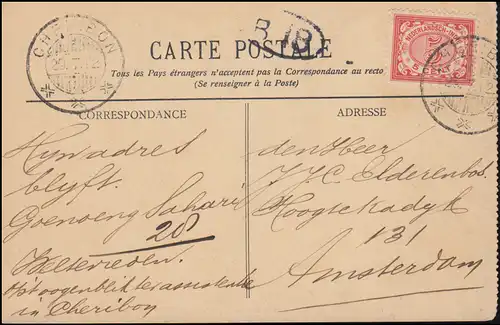 CHERIBON
B JB
CARTE POSTALE
Tous les Pays étrangers n'acceptent pas la Correspondance au recto
(Se renseigner à la Poste)
NEDERLANDSCH-INDIË
5
CORRESPONDANCE
Mijn adres
blyft.
Goenoeng Sahari
28
Weltevreden.
Op 't oogenblik ter assistentie
in Cheribon
ADRESSE
den Heer
J.J.C. Elderenbos.
Hoogte Kadyk
131
Amsterdam